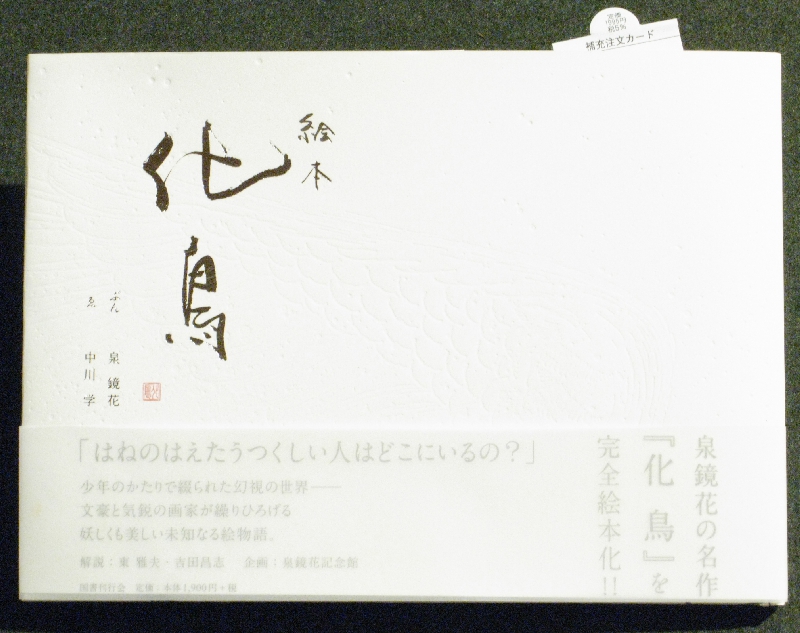 定価
1995円
税5%
補充注文カード
絵本
化鳥
ぶん 泉 鏡花
ゑ 中川 学
「はねのはえたうつくしい人はどこにいるの?」
少年のかたりで綴られた幻視の世界――
文豪と気鋭の画家が繰りひろげる
妖しくも美しい未知なる絵物語。
解説:東 雅夫・吉田昌志 企画:泉鏡花記念館
国書刊行会 定価:本体1,900円+税
泉鏡花の名作
『化鳥』を
完全絵本化!!